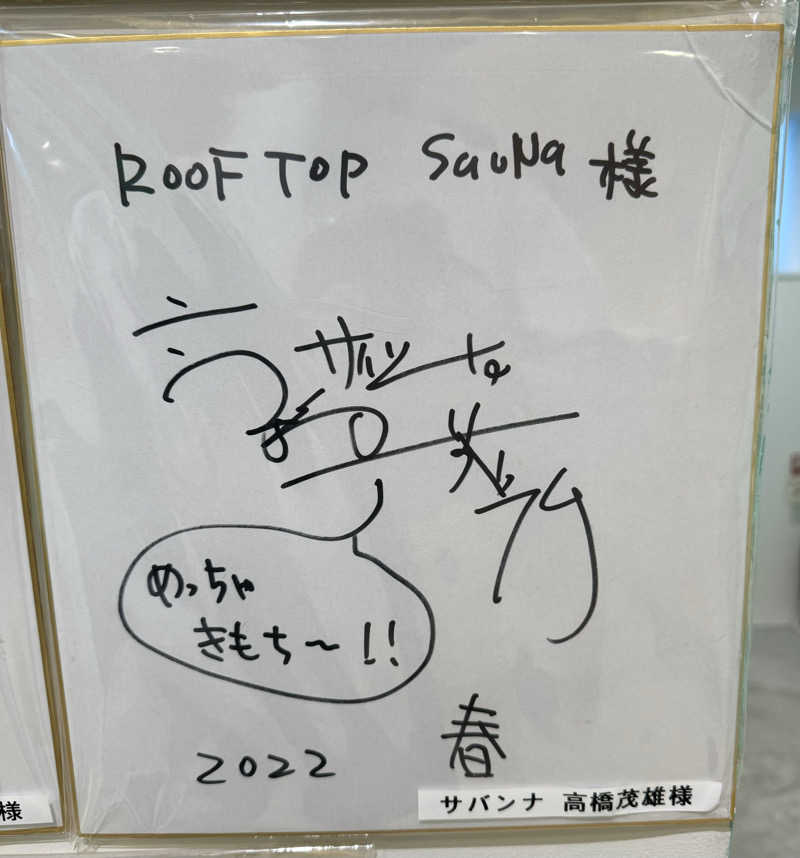 ROOFTOP SauNa 様
サバンナ
めっちゃ
きもち〜!!
2022 春
サバンナ 高橋茂雄様
様